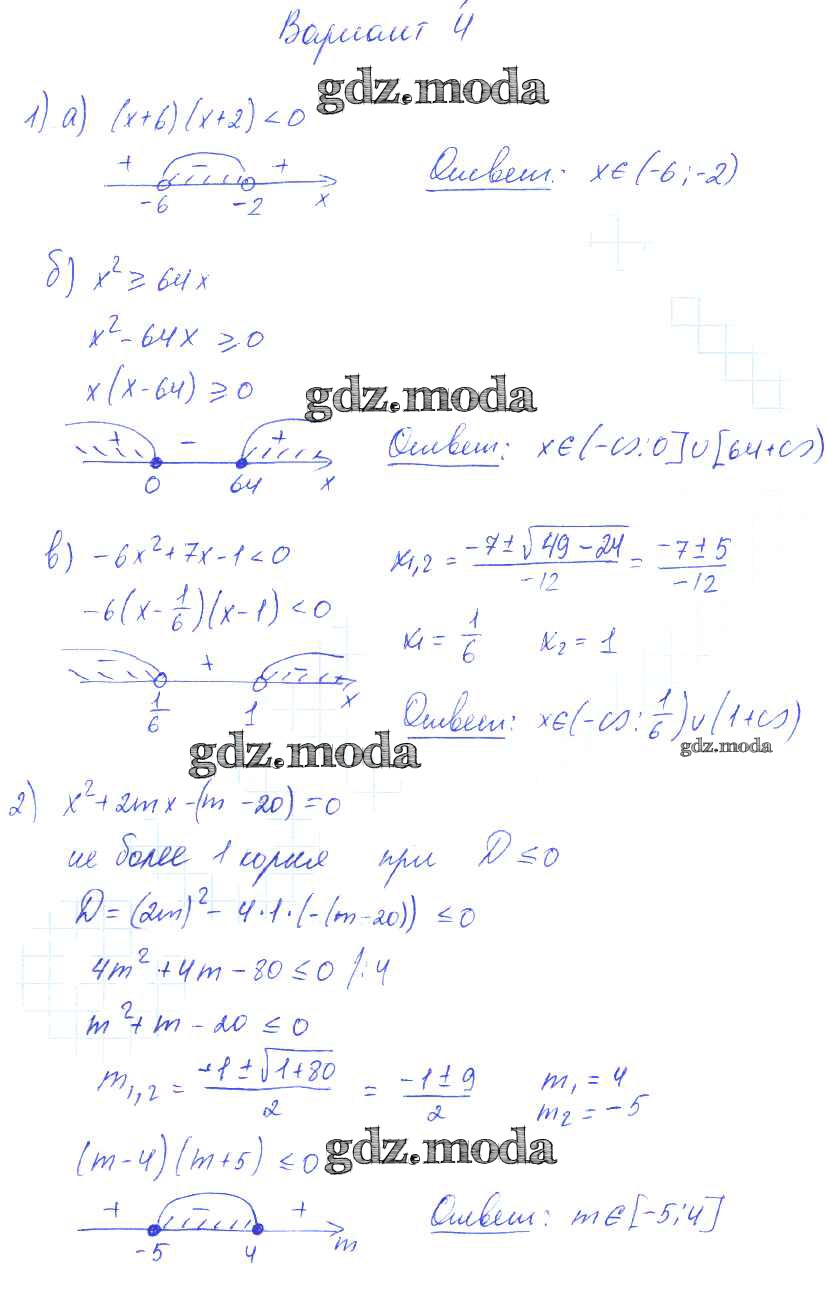 Вариант 4
gdz.moda
1) а) (x+6)(x+2)<0
+ - +
-6 -2 x
Ответ: x∈(-6;-2)
б) x²≥64x
x²-64x ≥0
x(x-64) ≥0
gdz.moda
+ - +
0 64 x
Ответ: x∈(-∞;0]∪[64+∞)
в) -6x²+7x-1<0
x₁,₂ = (-7±√(49-24))/(-12) = (-7±5)/(-12)
-6(x-1/6)(x-1)<0
x₁ = 1/6 x₂ = 1
- + -
1/6 1 x
Ответ: x∈(-∞;1/6)∪(1+∞)
gdz.moda
gdz.moda
2) x²+2mx-(m-20)=0
не более 1 корня при D ≤0
D=(2m)²-4·1·(-(m-20)) ≤0
4m²+4m-80≤0 /:4
m²+m-20 ≤0
m₁,₂ = (-1±√(1+80))/2 = (-1±9)/2 m₁ = 4
m₂ = -5
(m-4)(m+5) ≤0
gdz.moda
+ - +
-5 4 m
Ответ: m∈[-5;4]